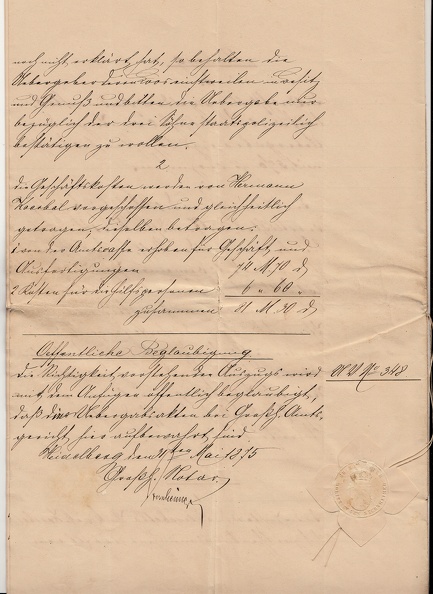 noch nicht erklärt hat, so behalten die
Uebergeber deren Loos einstweilen in Besitz
und Genuß und bitten die Uebergabe nur
bezüglich der drei Söhne staatspolizeilich
bestätigen zu wollen.
2
Die Geschäftskosten werden von Hermann
vorgeschossen und gleichheitlich
getragen, dieselben betragen:
1 von der Amtskasse erhoben für Geschäft und
Ausfertigungen 74 M. 70 d
2 Kosten für die Hülfspersonen 6 " 60 "
zusammen 81 M. 30 d
Oeffentliche Beglaubigung
Die Richtigkeit vorstehenden Auszugs wird
mit dem Anfügen öffentlich beglaubigt,
daß die Uebergabsakten bei Großh. Amts-
gericht hier aufbewahrt sind.
Heidelberg den ten Mai 1875
Großh. Notar
No 348